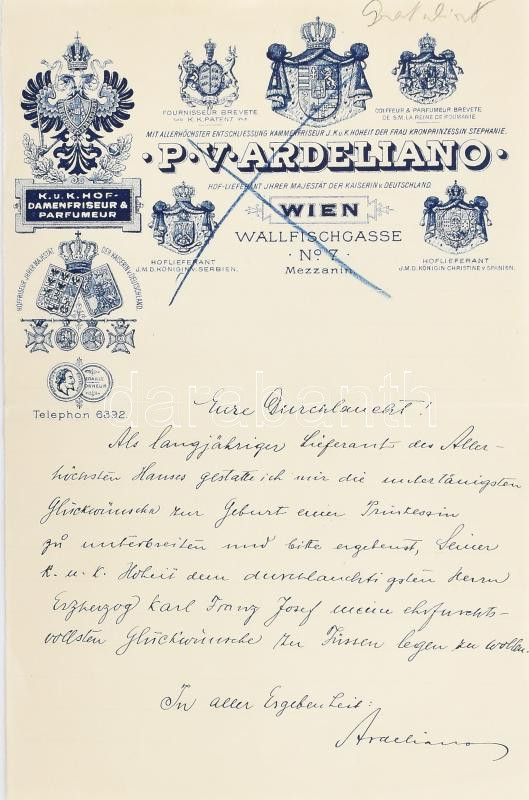 FOURNISSEUR BREVETE
K. K. PATENT
COIFFEUR & PARFUMEUR BREVETE
DE S.M. LA REINE DE ROUMANIE
MIT ALLERHÖCHSTER ENTSCHLIESSUNG KAMMERFRISEUR J. K. u. K. HOHEIT DER FRAU KRONPRINZESSIN STEPHANIE.
P. V. ARDELIANO
HOF-LIEFERANT IHRER MAJESTÄT DER KAISERIN v. DEUTSCHLAND.
K. u. K. HOF-
DAMENFRISEUR &
PARFUMEUR
WIEN
WALLFISCHGASSE
No 7
Mezzanin.
HOFLIEFERANT
J.M.D. KÖNIGIN v. SERBIEN.
HOFLIEFERANT
J.M.D. KÖNIGIN CHRISTINE v. SPANIEN.
HOFFRISEUR IHRER MAJESTÄT DER KAISERIN v. DEUTSCHLAND.
Telephon 6332.
darabanth
Eure Durchlaucht!
Als langjähriger Lieferant des Aller-
höchsten Hauses gestatte ich mir die untertänigsten
Glückwünsche zur Geburt einer Prinzessin
zu unterbreiten und bitte ergebenst, Seiner
k. u. k. Hoheit dem durchlauchtigsten Herrn
Erzherzog Karl Franz Josef meine ehrfurchts-
vollsten Glückwünsche zu Füssen legen zu wollen.
In aller Ergebenheit:
Ardeliano